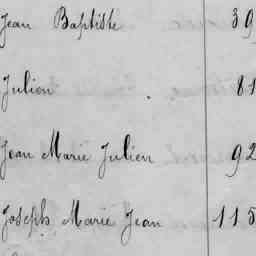 Jean Baptiste 39
Julien 81
Jean Marie Julien 92
Joseph Marie Jean 115